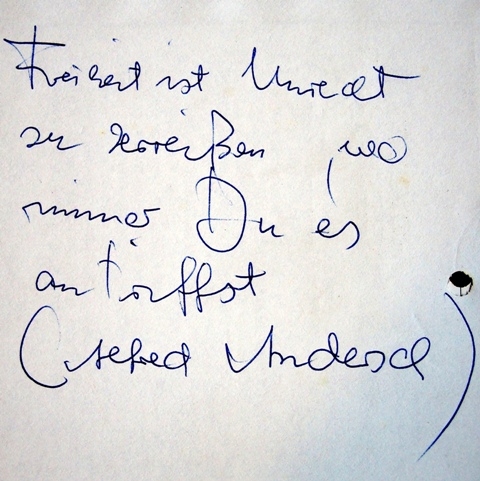 Freiheit ist Unrecht
zu zerreißen, wo
immer Du es
antriffst
(Alfred Andersch)